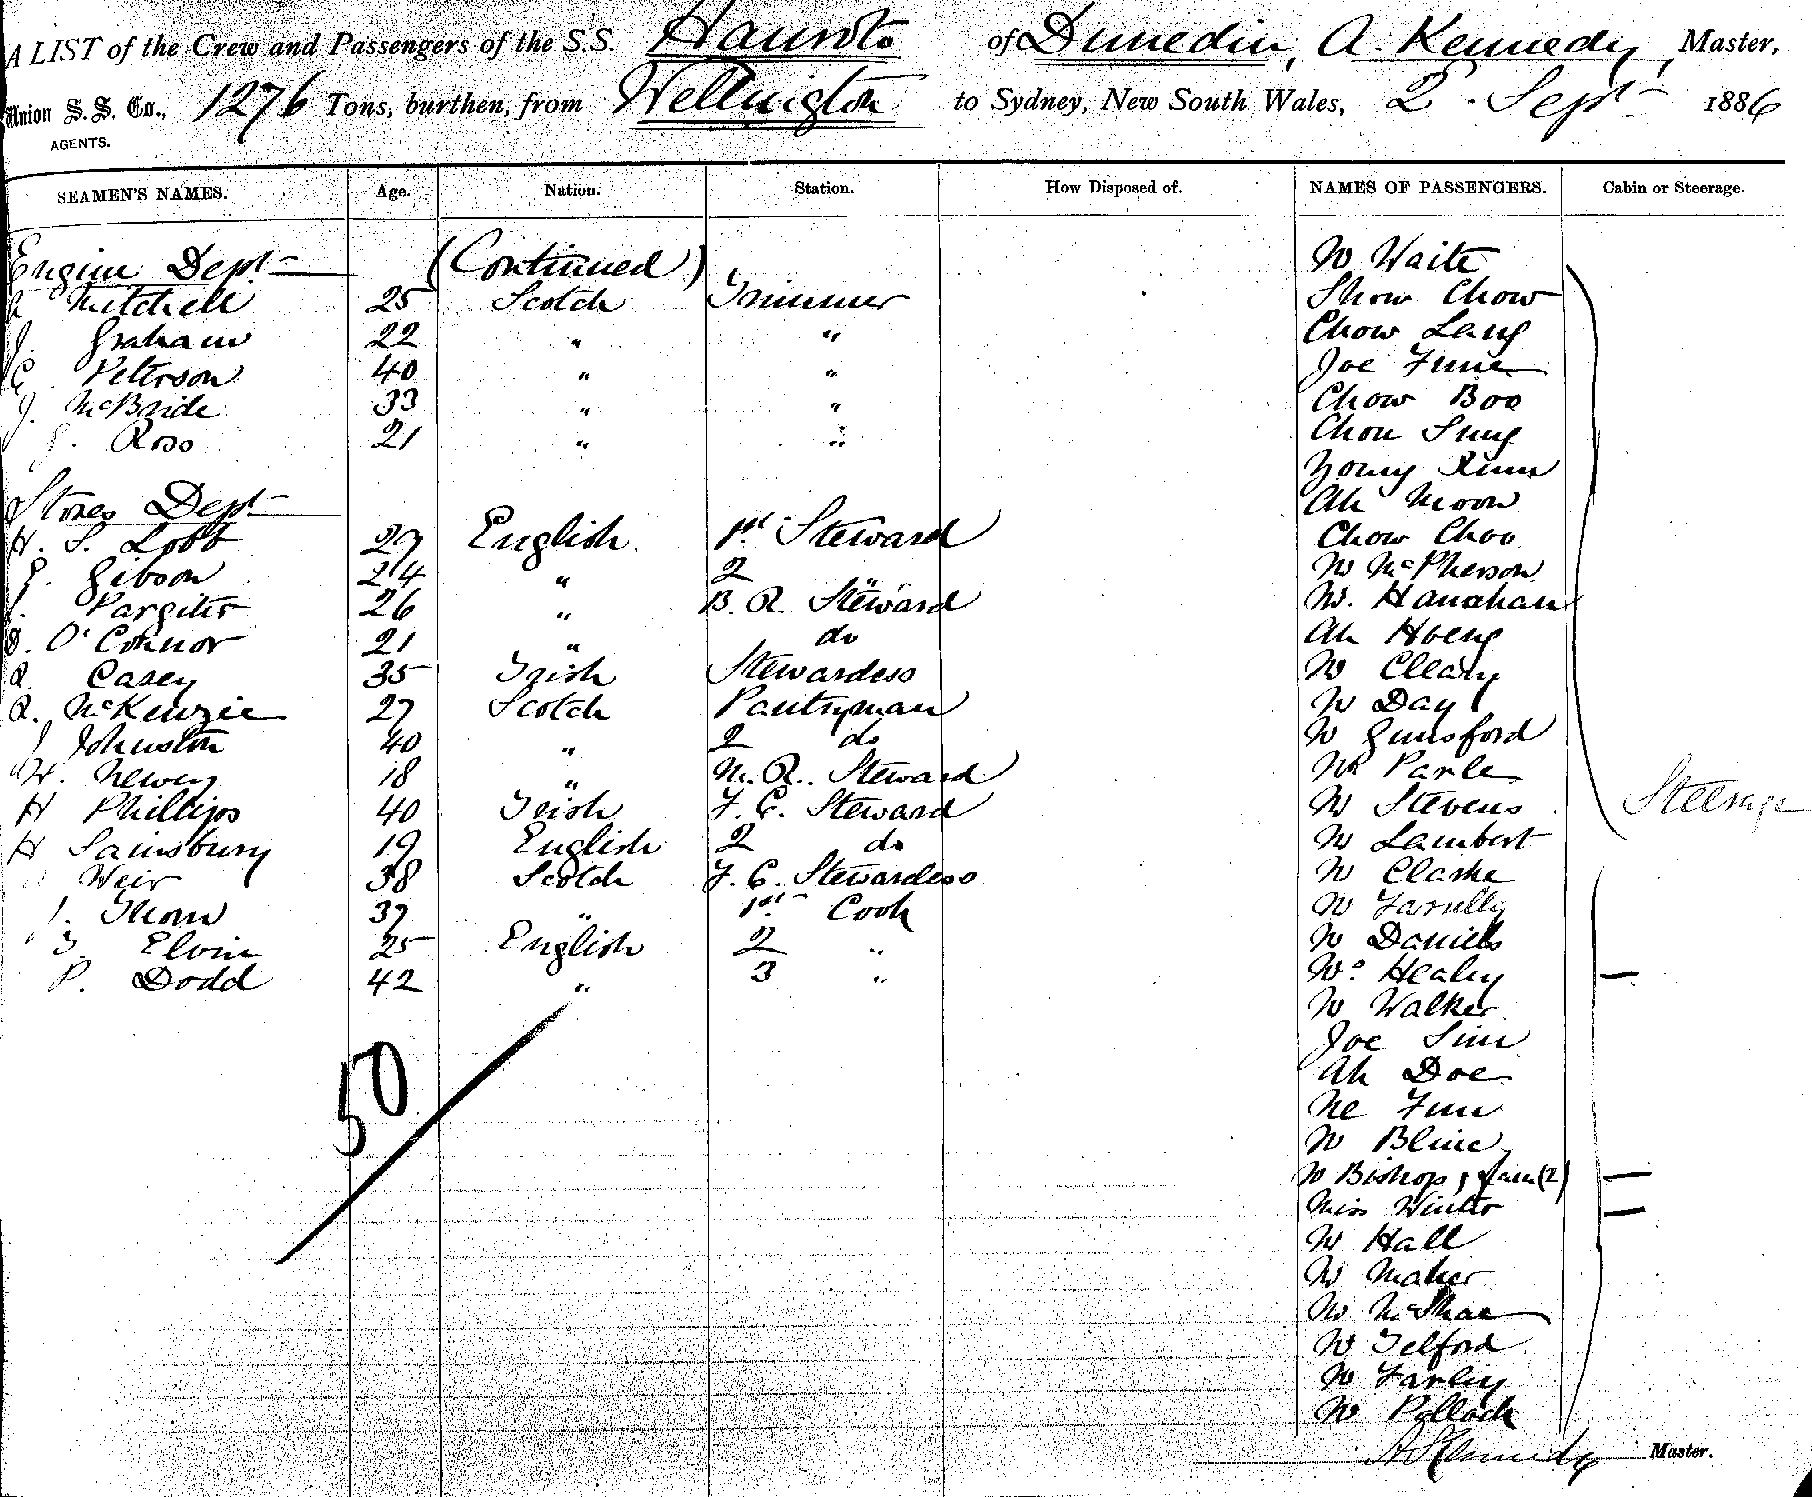 A LIST of the Crew and Passengers of the S.S. Hauroto of Dunedin, A. Kennedy, Master,
Union S. S. Co., 1276 Tons, burthen, from Wellington to Sydney, New South Wales, 2 Sept 1886
AGENTS.
SEAMEN'S NAMES. Age. Nation. Station. How Disposed of. NAMES OF PASSENGERS. Cabin or Steerage.
Engine Dept (Continued) Mr Waite
Mitchell 25 Scotch Trimmer Show Chow
J. Graham 22 " " Chow Lang
C. Peterson 40 " " Joe Fune
J. McBride 33 " " Chow Boo
Ross 21 " " Chou Sung
Young Kum
Stores Dept Ah Moon
H. S. Lobb 29 English 1st Steward Chow Choo
G. Gibson 24 " 2 " Mr McPherson
Pargiter 26 " B. R. Steward Mr. Hanahan
O'Connor 21 " do Ah Hoeng
Casey 35 Irish Stewardess Mr Cleary
R. McKenzie 27 Scotch Pantryman Mr Day
J Johnston 40 " 2 do Mr Gunsford
W. Newey 18 " M. R. Steward Mr Parle
H Phillips 40 Irish F. C. Steward Mr Stevens Steerage
H Sainsbury 19 English 2 do Mr Lambert
Weir 38 Scotch F. C. Stewardess Mr Clarke
J. Thom 37 " 1st Cook Mr Farrelly
Elvin 25 English 2 " Mr Daniels
P. Dodd 42 " 3 " Mrs Healey
Mr Walker
Joe Sim
50 Ah Doe
Ne Fun
Mr Bline
Mr Bishop & fam (2)
Miss Winter
Mr Hall
Mr Maher
Mr McShae
Mr Telford
Mr Farley
Mr Pollock
A Kennedy Master.